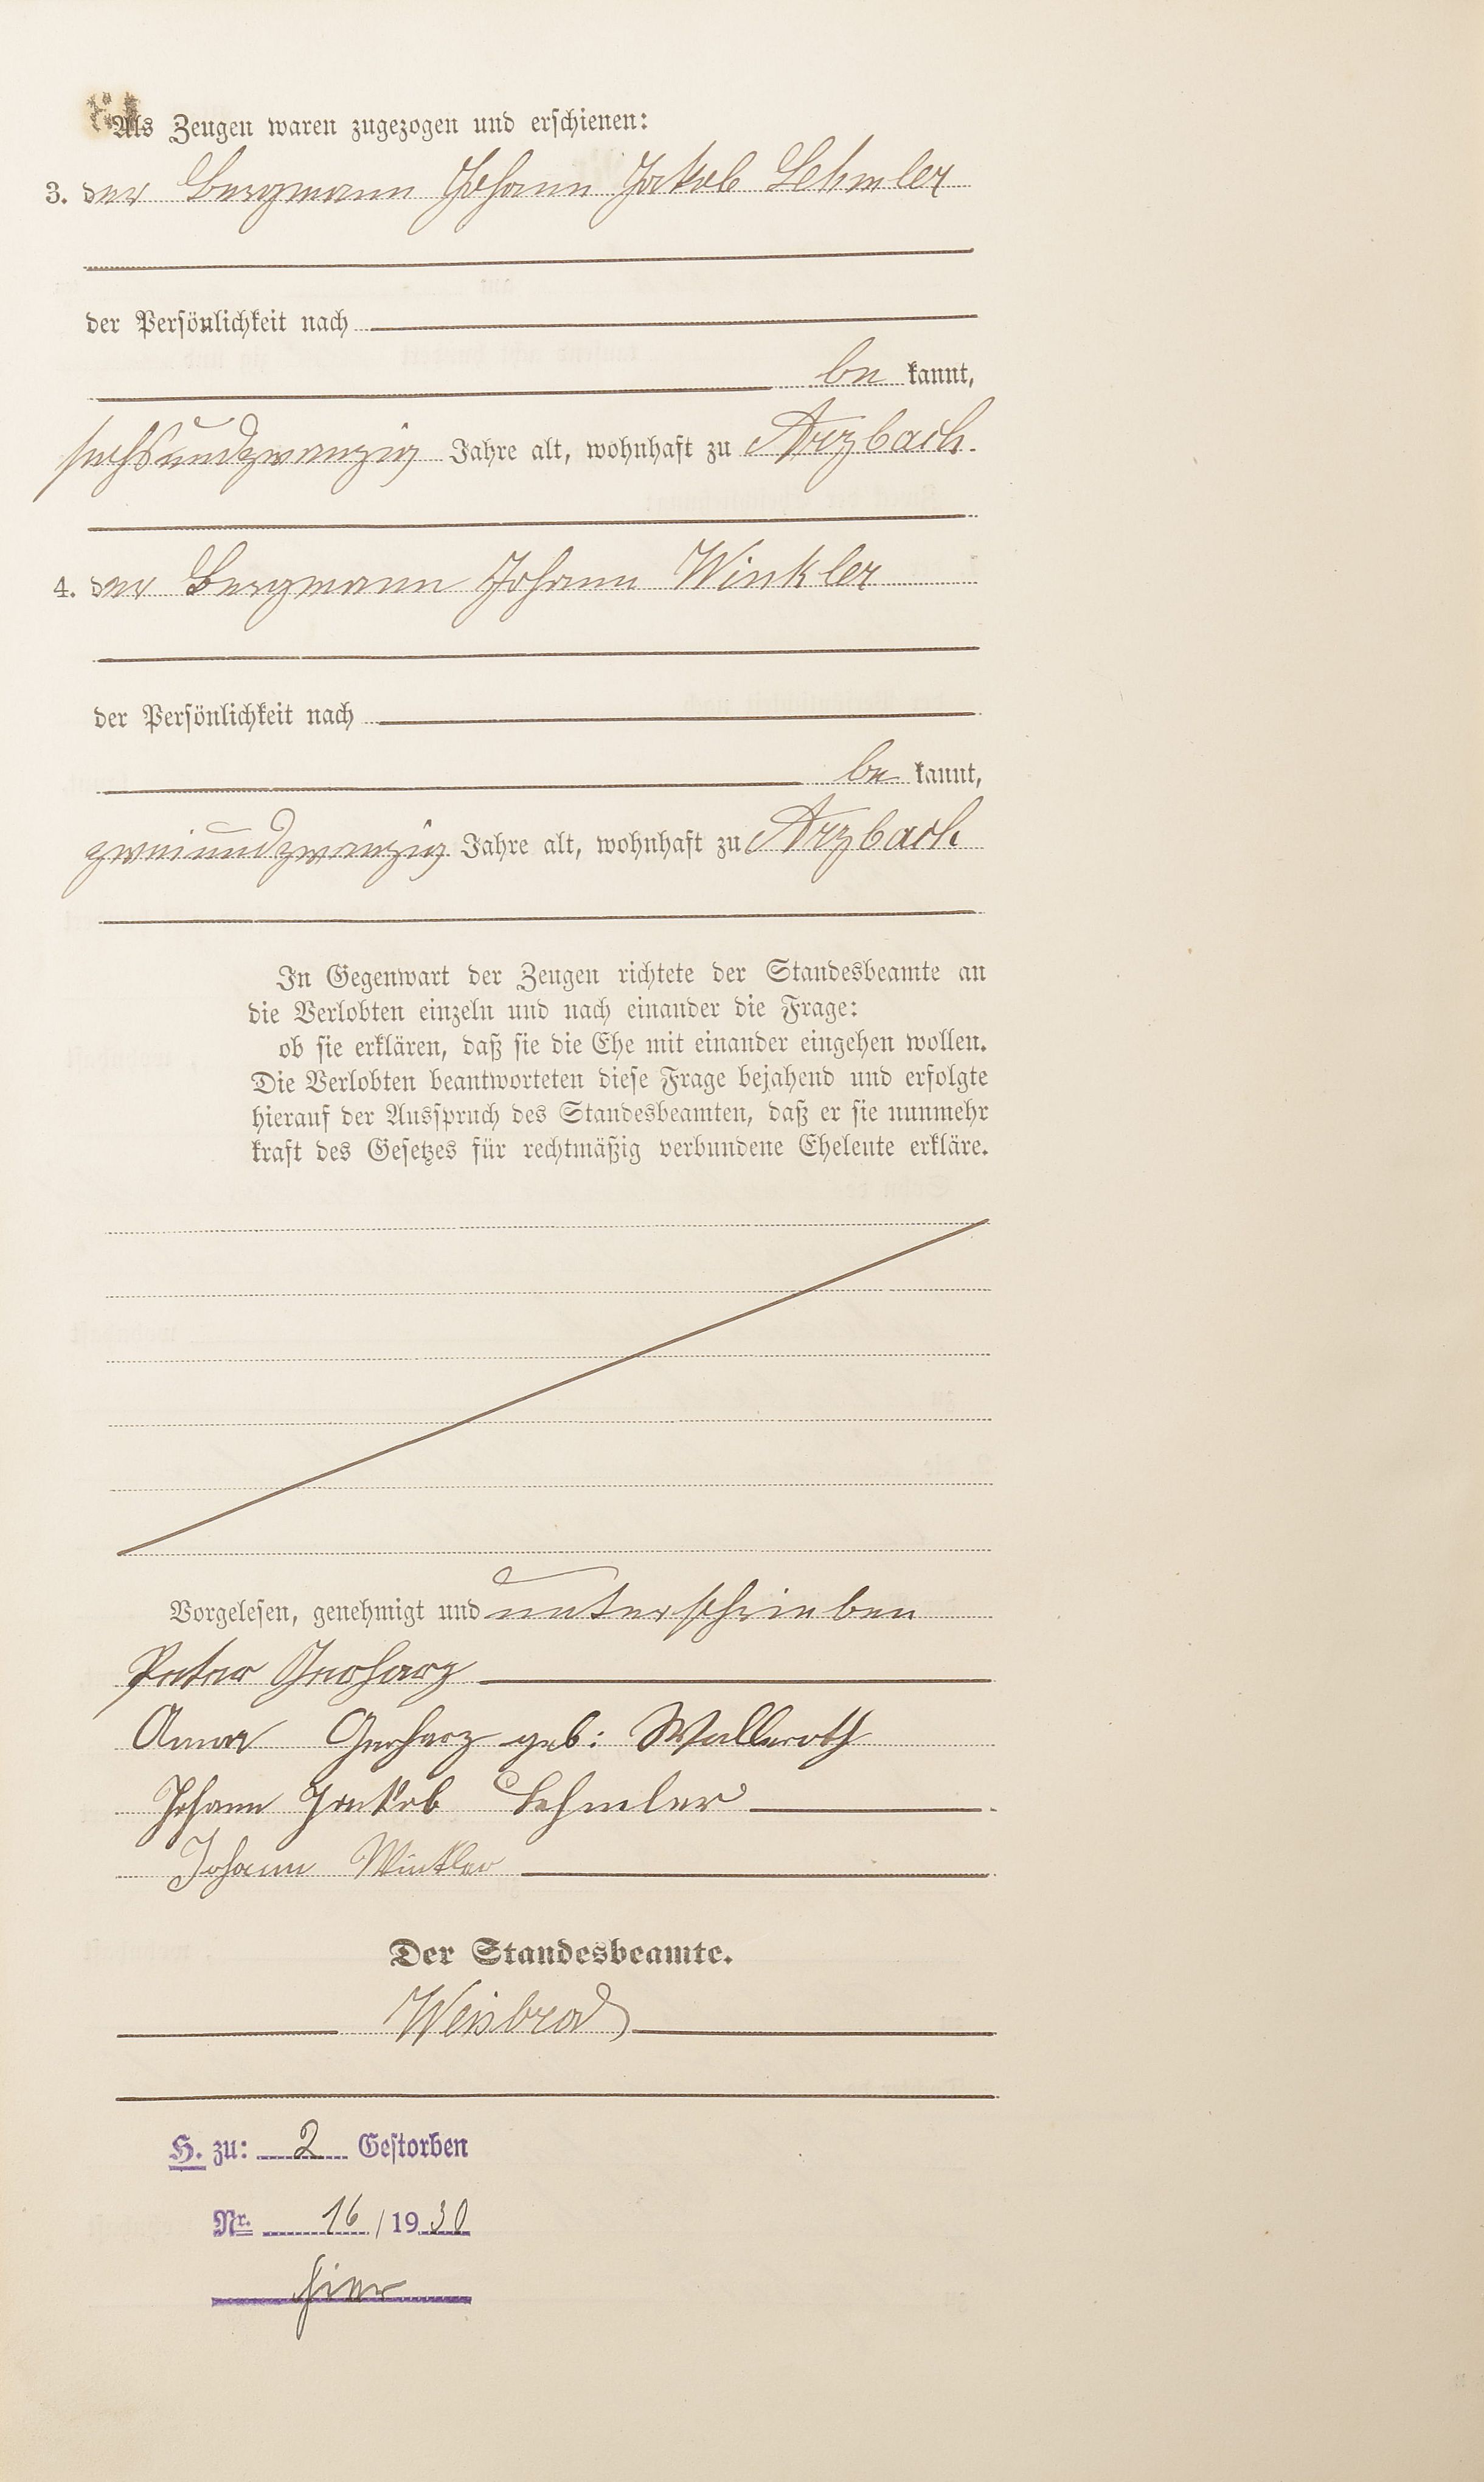 Als Zeugen waren zugezogen und erschienen:
3. der Bergmann Johann Jakob Lehmler
der Persönlichkeit nach
be kannt,
sechsundzwanzig Jahre alt, wohnhaft zu Arzbach.
4. der Bergmann Johann Winkler
der Persönlichkeit nach
be kannt,
zweiundzwanzig Jahre alt, wohnhaft zu Arzbach
In Gegenwart der Zeugen richtete der Standesbeamte an
die Verlobten einzeln und nach einander die Frage:
ob sie erklären, daß sie die Ehe mit einander eingehen wollen.
Die Verlobten beantworteten diese Frage bejahend und erfolgte
hierauf der Ausspruch des Standesbeamten, daß er sie nunmehr
kraft des Gesetzes für rechtmäßig verbundene Eheleute erkläre.
Vorgelesen, genehmigt und unterschrieben
Peter Gerharz
Anna Gerharz geb: Walleroth
Johann Jakob Lehmler
Johann Winkler
Der Standesbeamte.
Weisbrod
H. zu: 2 Gestorben
Nr. 16 / 19 30
hier